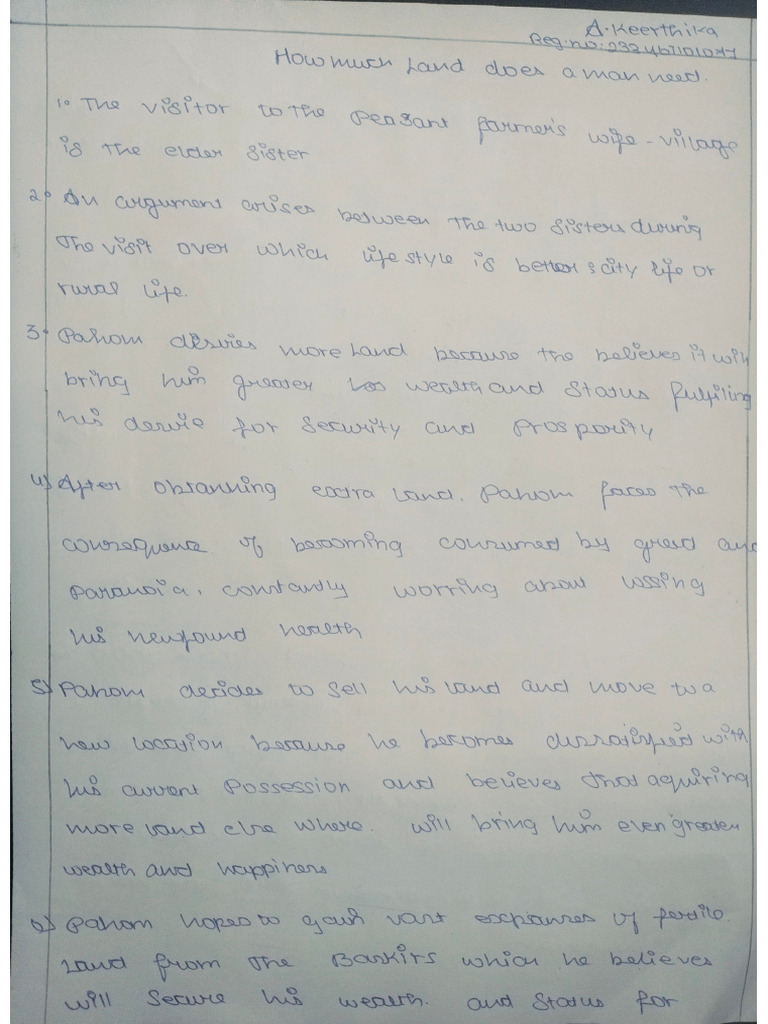 A. Keerthika
Reg.no: 232467101047
How much Land does a man need.
1. The visitor to the Peasant farmer's wife - village
is the elder sister
2. An argument arises between the two sisters during
the visit over which lifestyle is better city life or
rural life.
3. Pahom desires more land because the believes it will
bring him greater wealth and status fulfiling
his desire for security and Prospority
4) After obtanning extra land. Pahom faces the
consequence of becoming consumed by greed and
Paranoia, constantly worring about lossing
his newfound health
5) Pahom decides to sell his land and move to a
new location because he becomes dissatisfied with
his current Possession and believes that aquiring
more land else where. will bring him even greater
wealth and happiness
6) Pahom hopes to gain vast expanses of fertile.
Land from the Baskirs which he believes
will secure his wealth. and status for